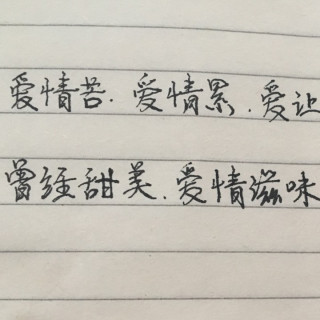 爱情苦.爱情累.爱让
曾经甜美.爱情滋味